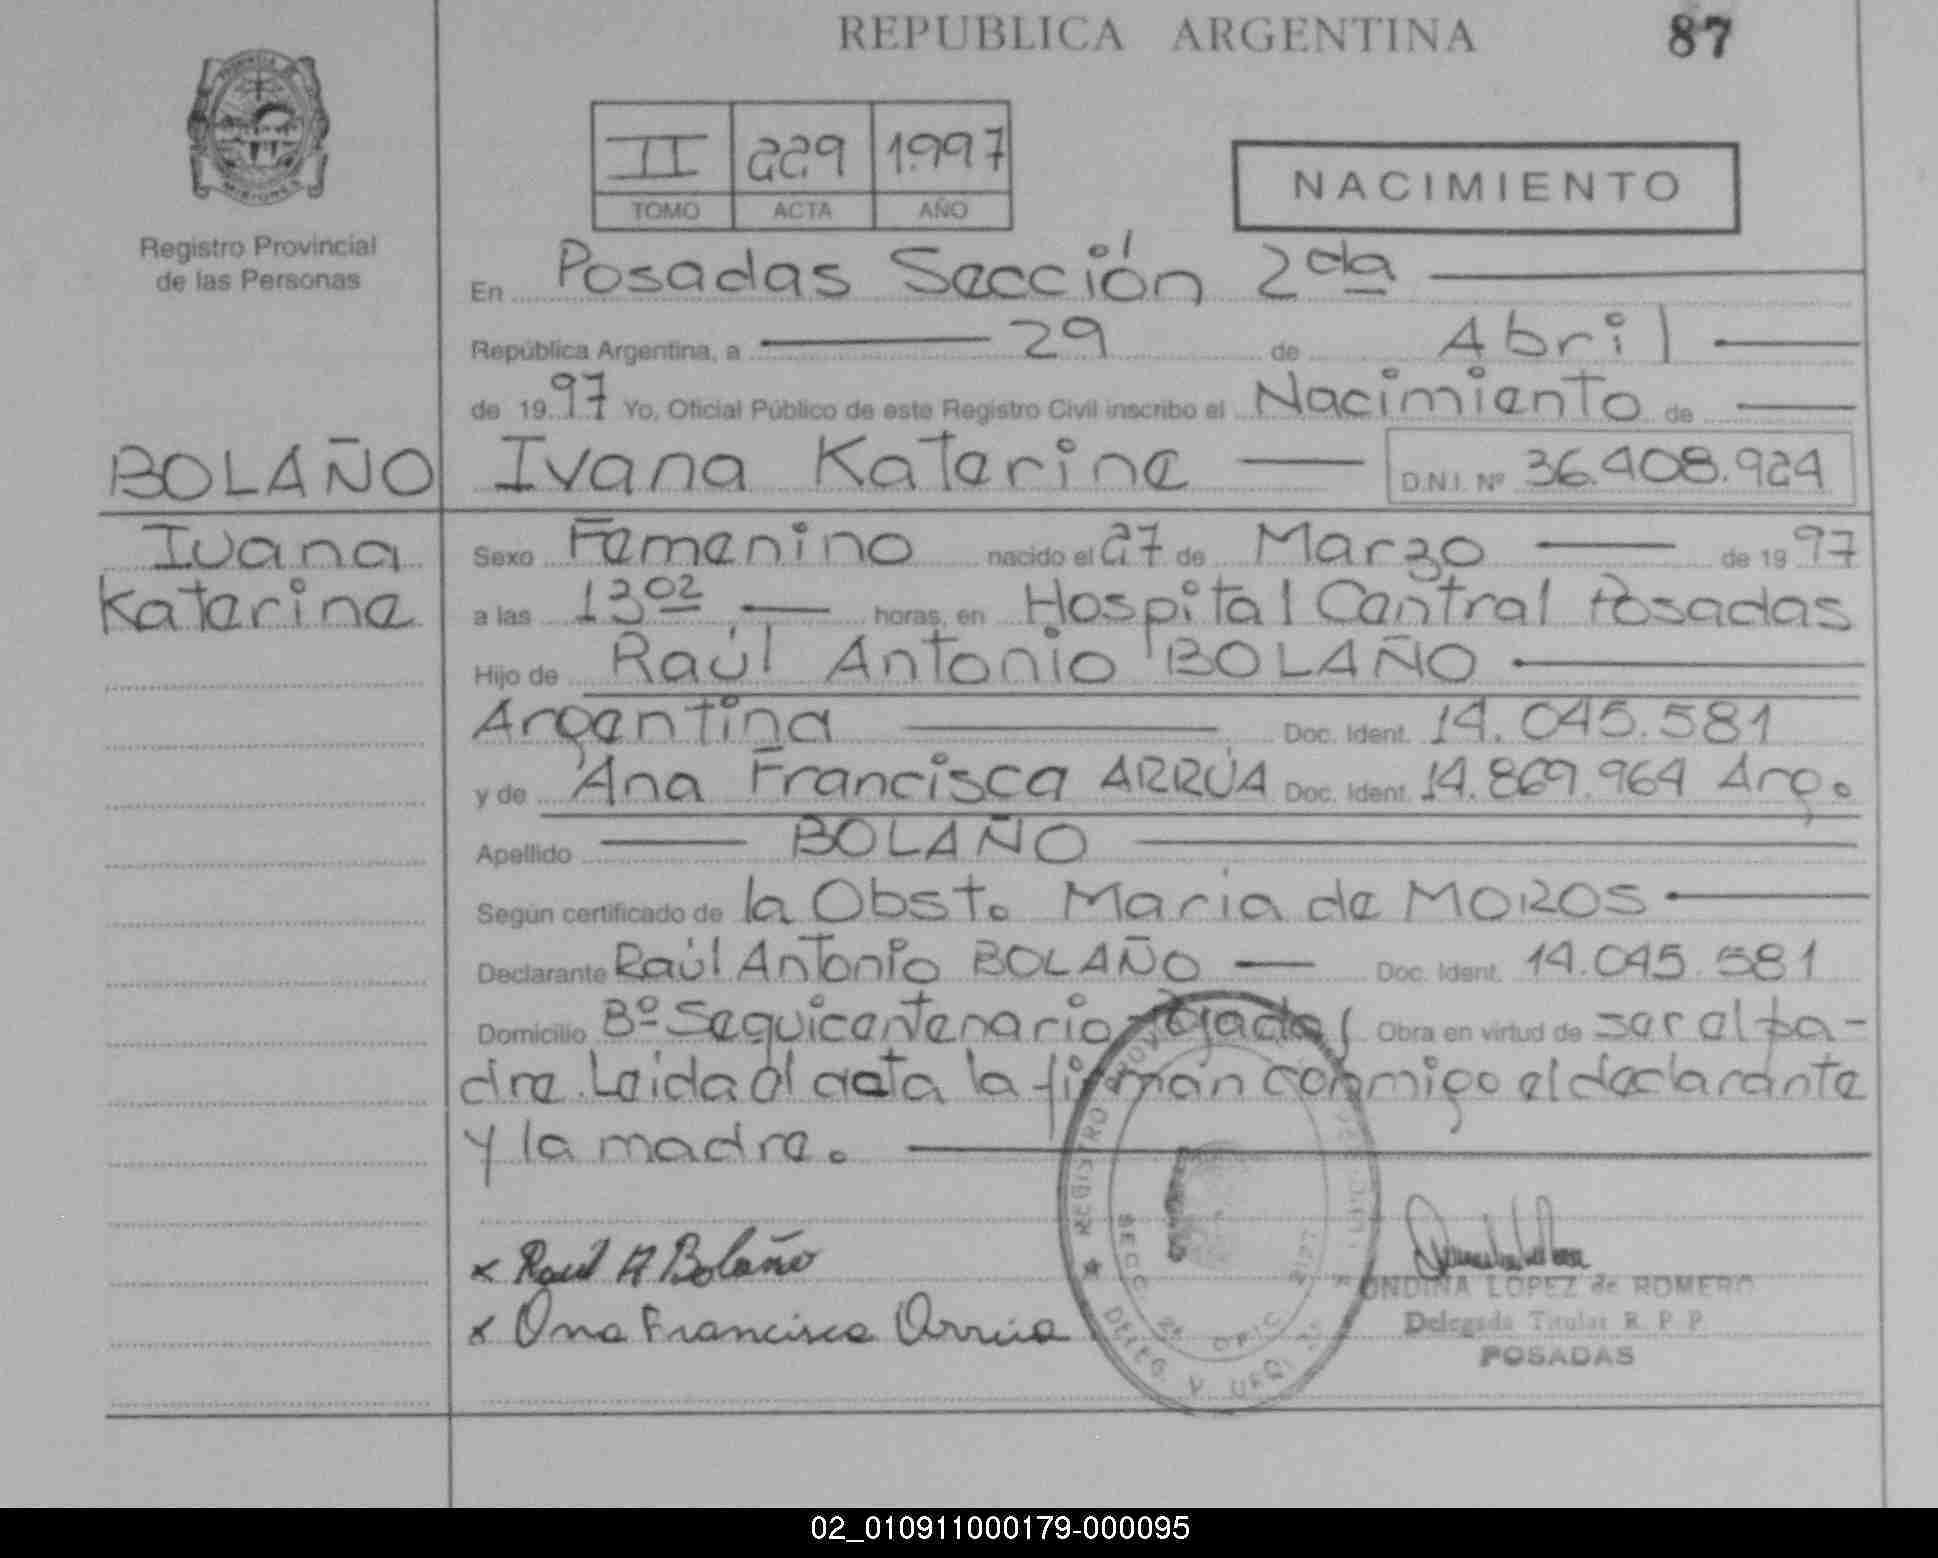 REPUBLICA ARGENTINA 87
PROVINCIA DE
MISIONES
Registro Provincial
de las Personas
II 229 1.997
TOMO ACTA AÑO
NACIMIENTO
En Posadas Sección 2da
República Argentina, a 29 de Abril
de 1997 Yo, Oficial Público de este Registro Civil inscribo el Nacimiento de
BOLAÑO
Ivana
Katerine
Ivana Katerine D.N.I. Nº 36.408.924
Sexo Femenino nacido el 27 de Marzo de 1997
a las 13 02 horas, en Hospital Central Posadas
Hijo de Raúl Antonio BOLAÑO
Argentina Doc. Ident. 14.045.581
y de Ana Francisca ARRÚA Doc. Ident. 14.869.964 Arg.
Apellido BOLAÑO
Según certificado de la Obst. Maria de MOROS
Declarante Raúl Antonio BOLAÑO Doc. Ident. 14.045.581
Domicilio Bº Sequicentenario Pjadas Obra en virtud de ser el pa-
dre. Leida el acta la firman conmigo el declarante
y la madre.
x Raul A Bolaño
x Ana Francisca Arrúa
REGISTRO
SECC 2ª OFIC
DELEG
ONDINA LOPEZ de ROMERO
Delegada Titular R. P. P.
POSADAS
02_010911000179-000095